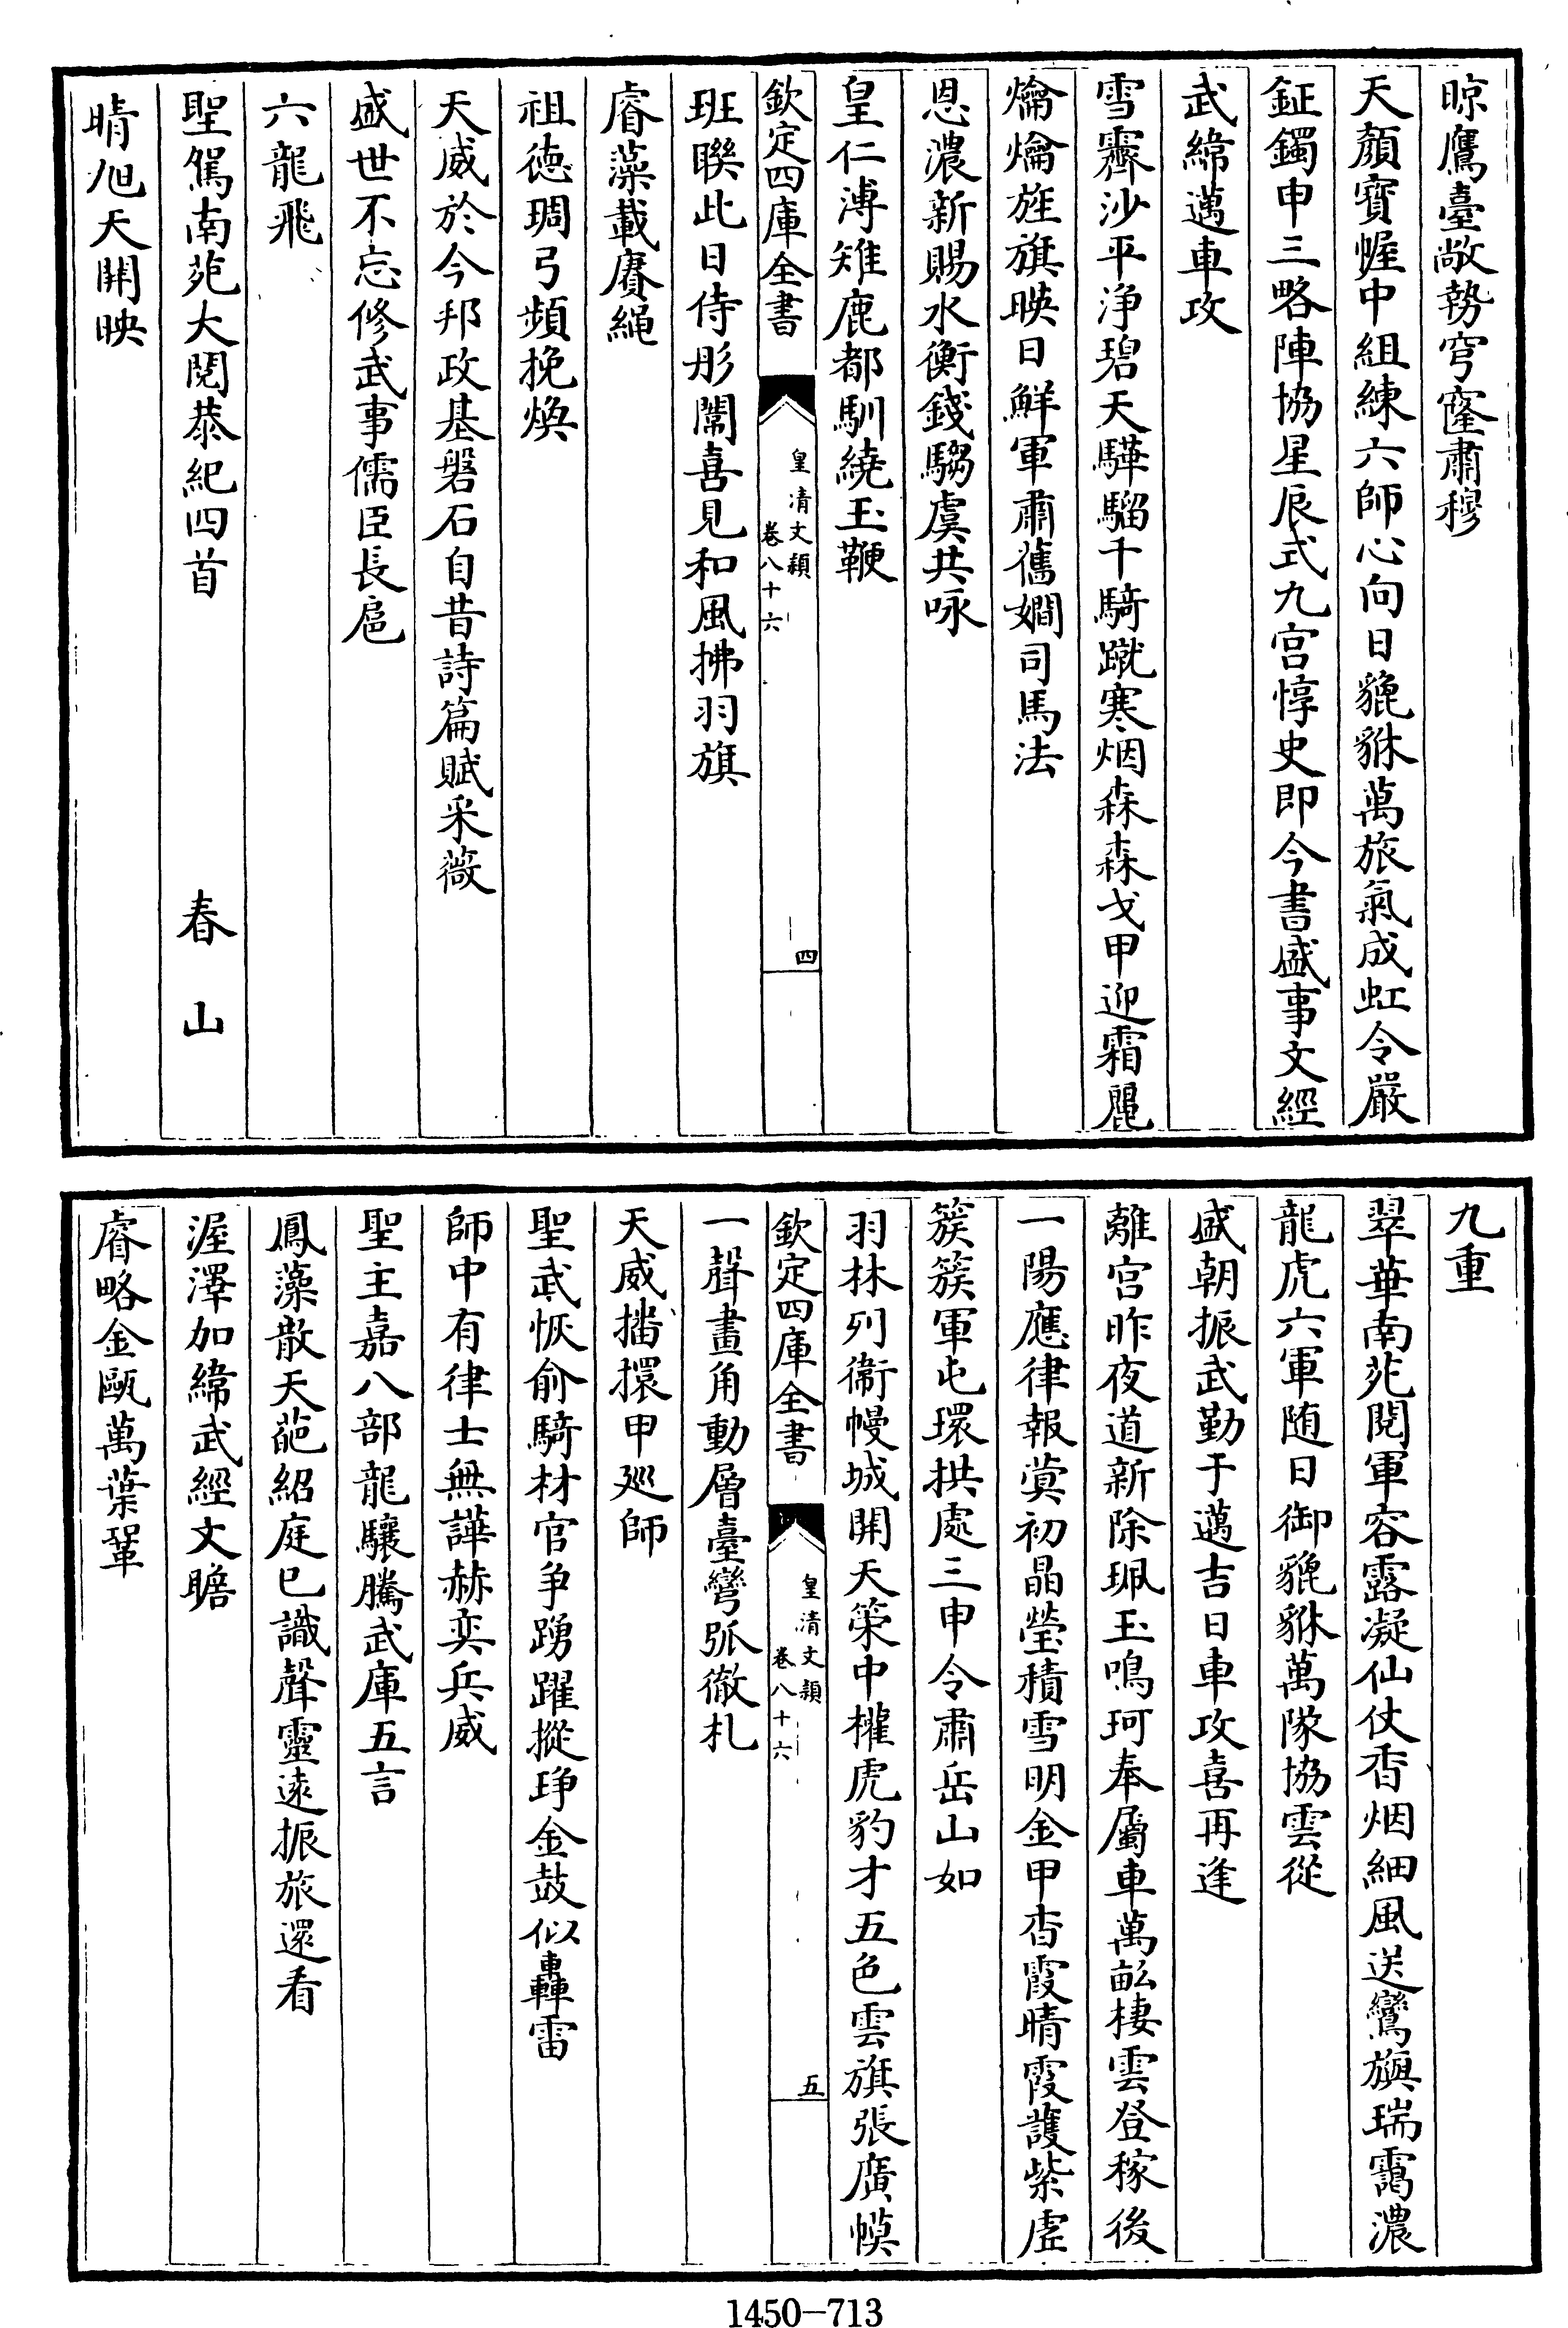 晾鷹臺敞勢穹窿肅穆
天顏寳幄中組練六師心向日貔貅萬旅氣成虹令嚴
鉦鐲申三略陣協星辰式九宫惇史即今書盛事文經
武緯邁車攻
雪霽沙平浄碧天驊騮千騎蹴寒烟森森戈甲迎霜麗
爚爚旌旗暎日鮮軍肅舊嫺司馬法
恩濃新賜水衡錢騶虞共咏
皇仁溥雉鹿都馴繞玉鞭
欽定四庫全書
皇清文穎
卷八十六
四
班聯此日侍彤闈喜見和風拂羽旗
睿藻載賡繩
祖徳琱弓頻挽煥
天威於今邦政基磐石自昔詩篇賦采薇
盛世不忘修武事儒臣長扈
六龍飛
聖駕南苑大閱恭紀四首 春山
晴旭天開映
九重
翠華南苑閱軍容露凝仙仗香烟細風送鸞旟瑞靄濃
龍虎六軍随日御貔貅萬隊協雲從
盛朝振武勤于邁吉日車攻喜再逢
離宫昨夜道新除珮玉鳴珂奉屬車萬畝棲雲登稼後
一陽應律報蓂初晶瑩積雪明金甲杳霞晴霞護紫虚
簇簇軍屯環拱處三申令肅岳山如
羽林列衞幔城開天策中權虎豹才五色雲旗張廣幙
欽定四庫全書
皇清文穎
卷八十六
五
一聲畫角動層臺彎弧徹札
天威播擐甲廵師
聖武恢俞騎材官争踴躍摐琤金鼓似轟雷
師中有律士無譁赫奕兵威
聖主嘉八部龍驤騰武庫五言
鳳藻散天葩紹庭已識聲靈遠振旅還看
渥澤加緯武經文瞻
睿略金甌萬葉鞏
1450-713